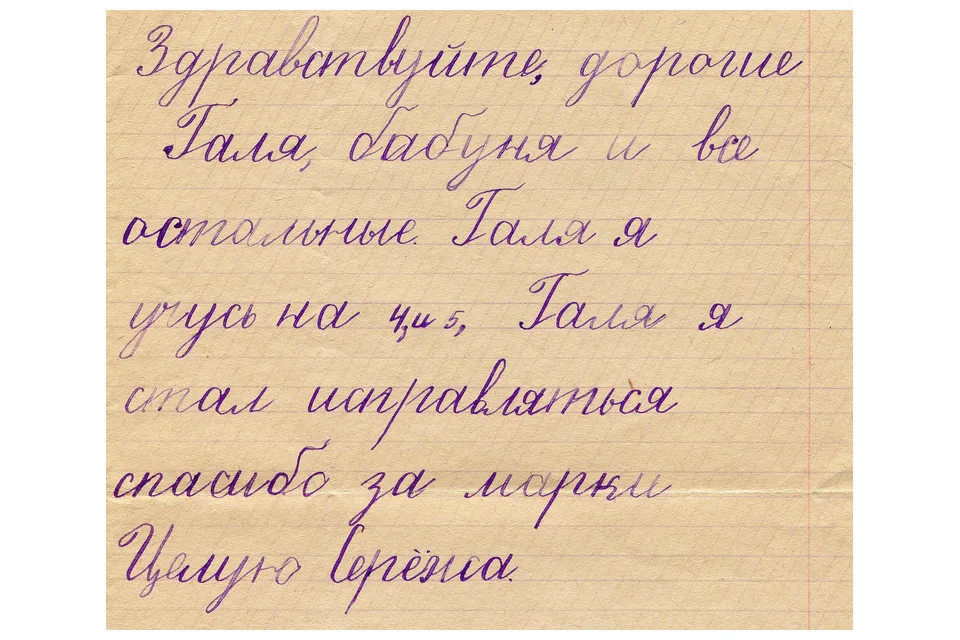 Здравствуйте, дорогие
Галя, бабуня и все
остальные. Галя я
учусь на 4, и 5, Галя я
стал исправляться
спасибо за марки
Целую Серёжа.